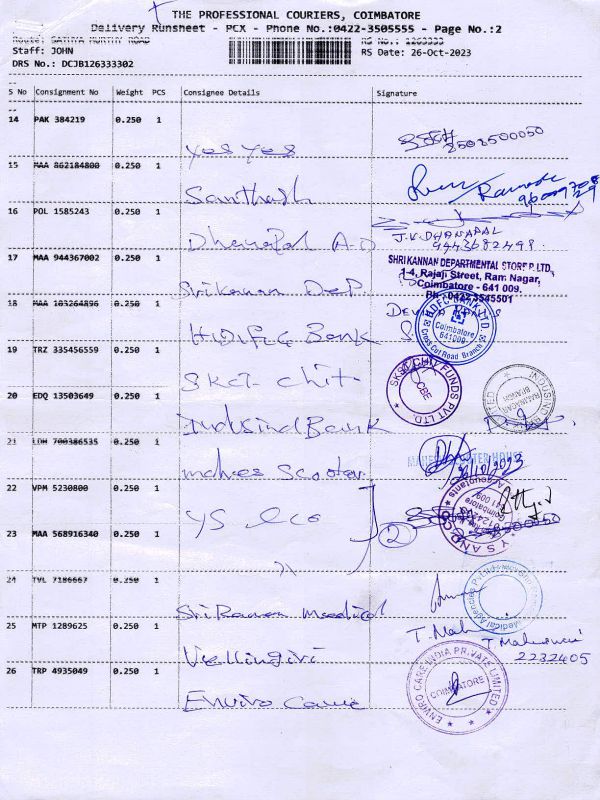 THE PROFESSIONAL COURIERS, COIMBATORE
Delivery Runsheet - PCX - Phone No.:0422-3505555 - Page No.:2
Route: SATHYA MURTHY ROAD RS No.: 1263333
Staff: JOHN RS Date: 26-Oct-2023
DRS No.: DCJB126333302
S No Consignment No Weight PCS Consignee Details Signature
14 PAK 384219 0.250 1
yes yes 8508500050
15 MAA 862184800 0.250 1
Santhosh
16 POL 1585243 0.250 1
Dhanapal A.D J.V.DHANAPAL
9443682498
17 MAA 944367002 0.250 1
SHRI KANNAN DEPARTMENTAL STORE P. LTD.,
1-4, Rajaji Street, Ram Nagar,
Coimbatore - 641 009.
Ph : 0422 3545501
Srikanan Dep
18 MAA 103264896 0.250 1
HDFC BANK LTD.
Coimbatore
641009
Cross Cut Road Branch
H.D.F.C Bank
19 TRZ 335456559 0.250 1
SKCT CHIT FUNDS PVT LTD
CBE
Skct- chit-
20 EDQ 13503649 0.250 1
INDUSIND BANK LIMITED
RAMNAGAR
BRANCH
Indusind Bank
21 LDH 700386535 0.250 1
mahes Scooter 26/10/2023
22 VPM 5230800 0.250 1
YS AND CO
Coimbatore
YS &co 2
23 MAA 568916340 0.250 1
24 TVL 7186667 0.250 1
Medical Agencies Pvt Ltd
Sri Kanan Medical
25 MTP 1289625 0.250 1
Vellingiri T. Maheswari
2232405
26 TRP 4935049 0.250 1
ENVIRO CARE INDIA PRIVATE LIMITED
COIMBATORE
Enviro Care